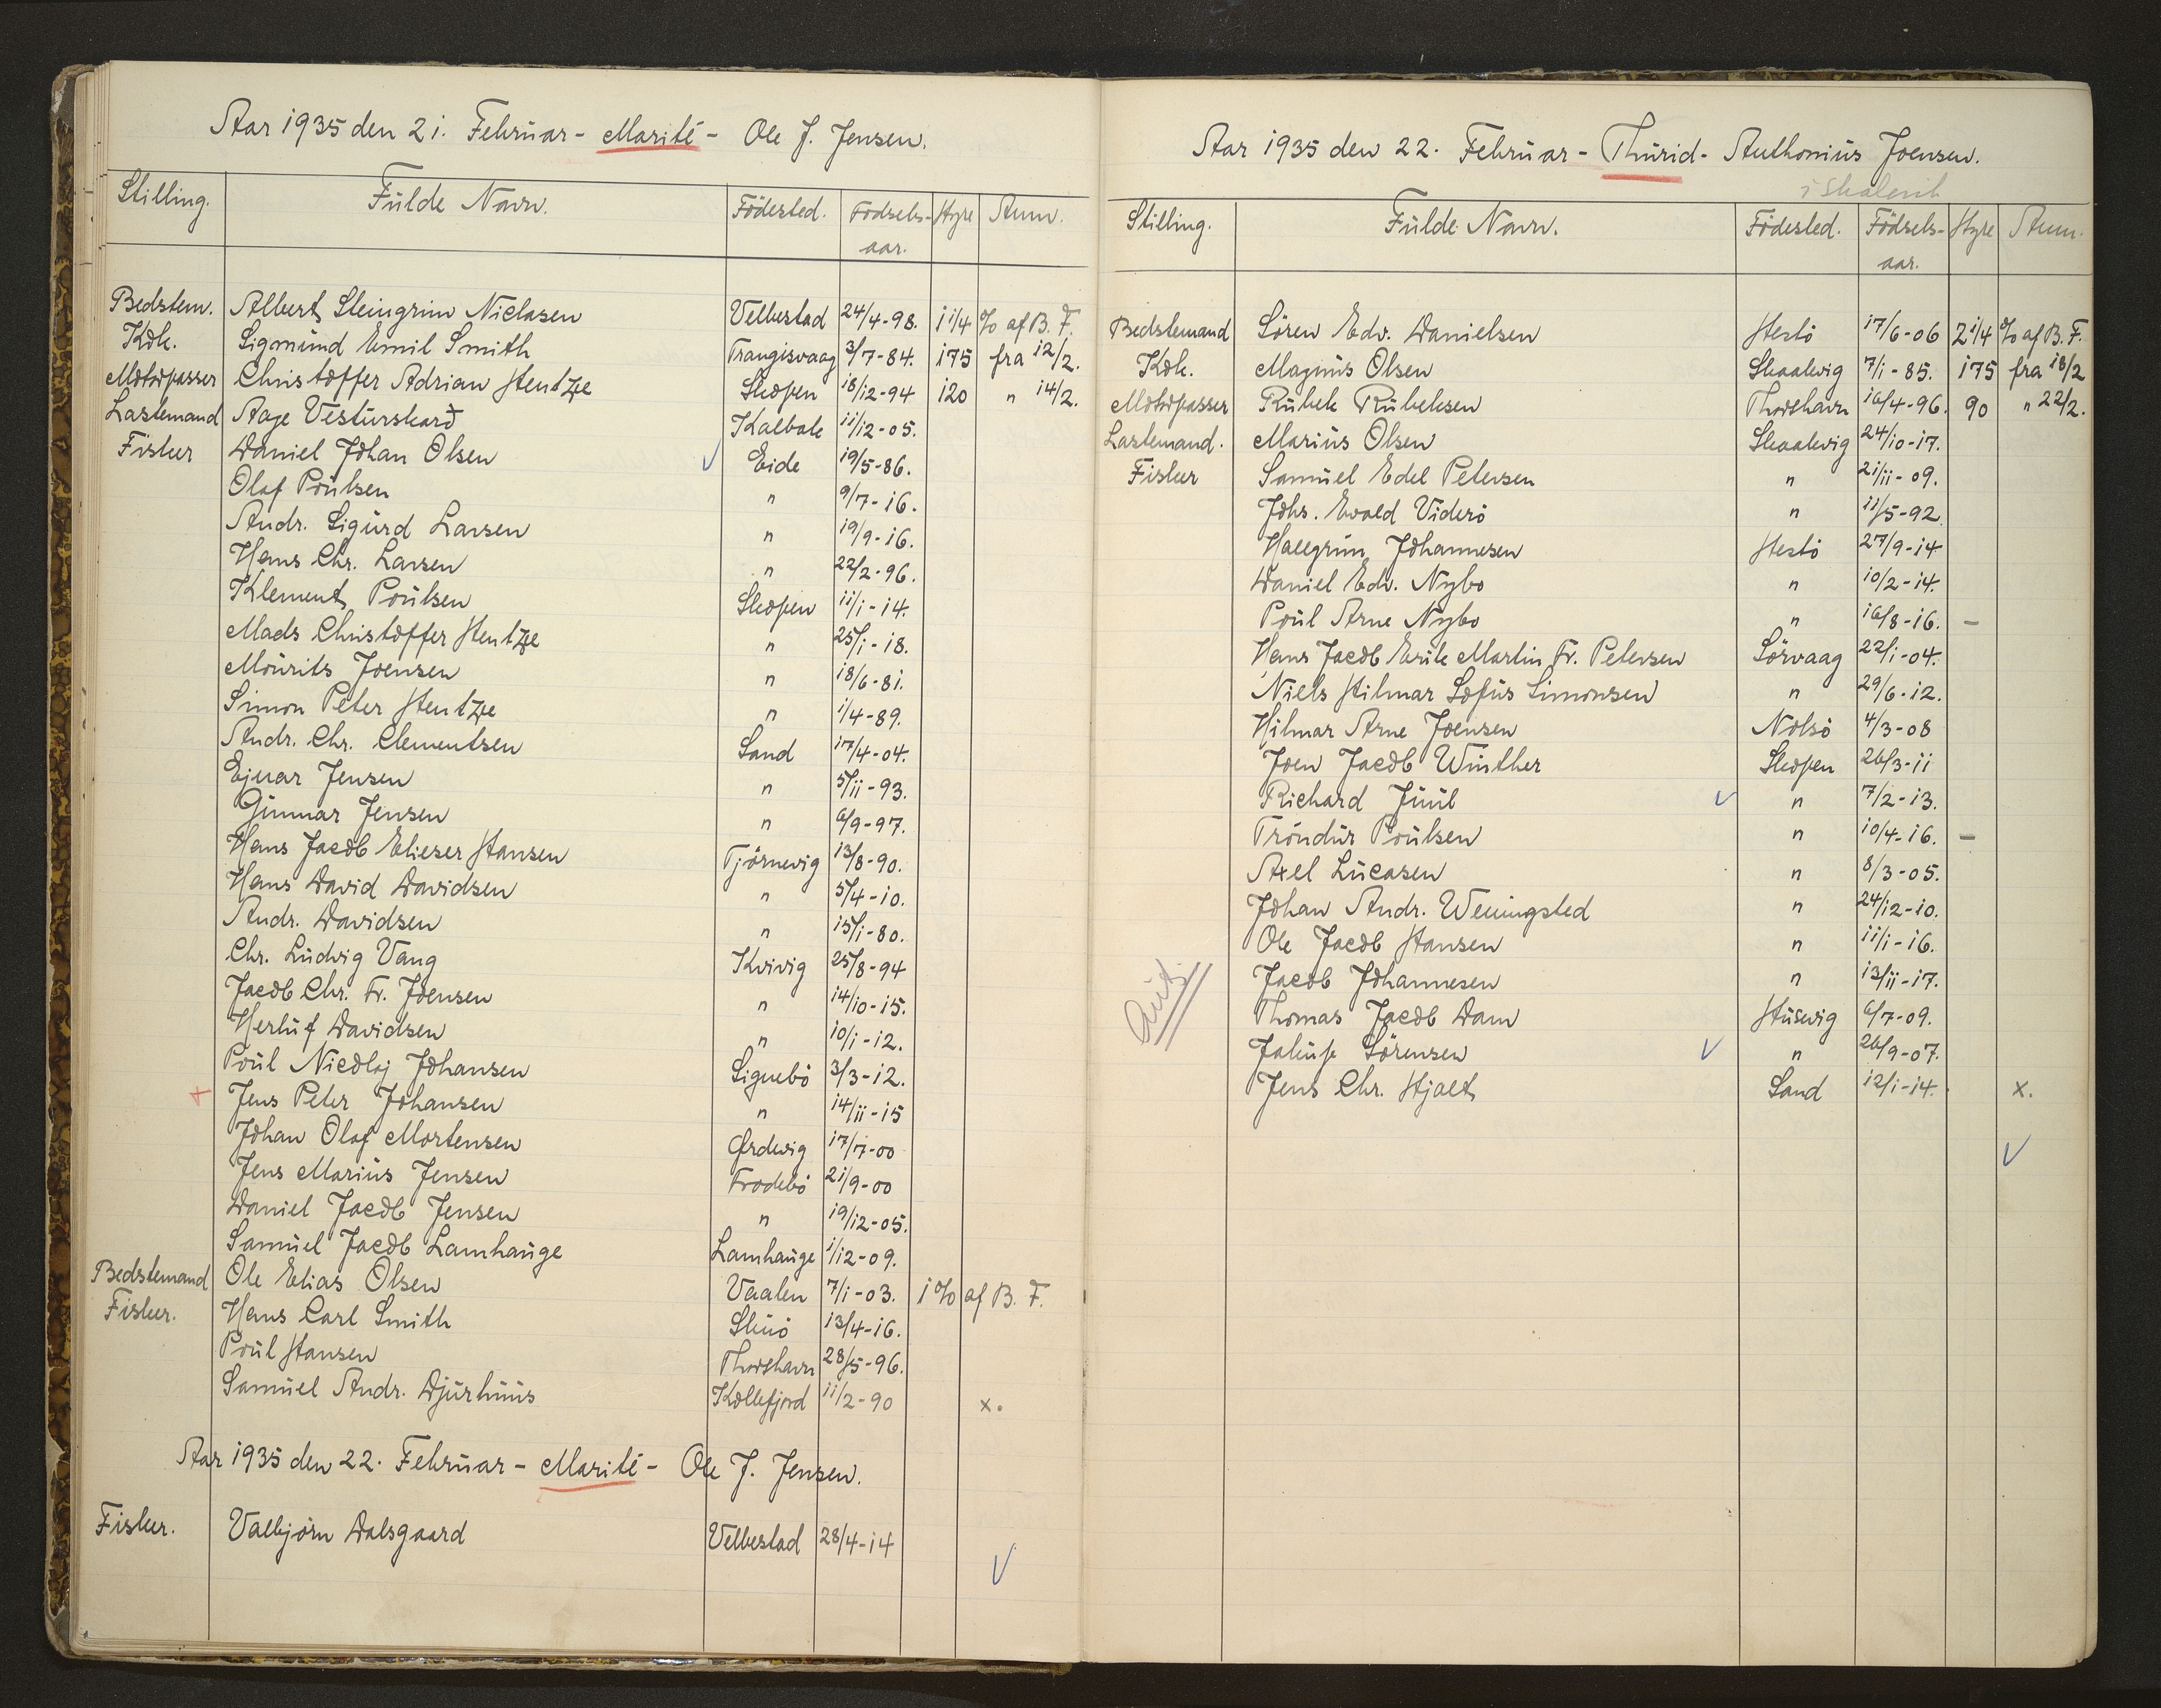 Aar 1935 den 21. Februar - Marité - Ole J. Jensen.
Stilling. Fulde Navn. Födested. Födsels- Hyre Anm.
aar.
Bedstem. Albert Steingrim Niclasen Velbestad 24/4-98. 1 1/4 % af B. F.
Kok. Sigmund Emil Smith Trangisvaag 3/7-84. 175 fra 12/2.
Motorpasser Christoffer Adrian Hentze Skopen 18/12-94 120 " 14/2.
Lastemand Aage Vesturskarð Kalbak 11/12-05.
Fisker Daniel Johan Olsen ✓ Eide 19/5-86.
Olaf Poulsen " 9/7-16.
Andr. Sigurd Larsen " 19/9-16.
Hans Chr. Larsen " 22/2-96.
Klement Poulsen Skopen 11/1-14.
Mads Christoffer Hentze " 25/1-18.
Mourits Joensen " 18/6-81.
Simon Peter Hentze " 1/4-89.
Andr. Chr. Clementsen Sand 17/4-04.
Ejnar Jensen " 5/11-93.
Gunnar Jensen " 6/9-97.
Hans Jacob Elieser Hansen Tjörnevig 13/8-90.
Hans David Davidsen " 5/4-10.
Andr. Davidsen " 15/1-80.
Chr. Ludvig Vang Kvivig 25/8-94
Jacob Chr. Fr. Joensen " 14/10-15.
Herluf Davidsen " 10/1-12.
Poul Nicolaj Johansen Signebö 3/3-12.
x Jens Peter Johansen " 14/11-15
Johan Olaf Mortensen Ørdevig 17/7-00
Jens Marius Jensen Frodebö 21/9-00
Daniel Jacob Jensen " 19/12-05.
Samuel Jacob Lamhauge Lamhauge 1/12-09.
Bedstemand Ole Elias Olsen Vaalen 7/1-03. 1 % af B. F.
Fisker. Hans Carl Smith Skuö 13/4-16.
Poul Hansen Thorshavn 28/5-96.
Samuel Andr. Djurhuus Kollefjord 11/2-90 x.
Aar 1935 den 22. Februar - Marité - Ole J. Jensen.
Fisker. Valbjörn Dalsgaard Velbestad 28/4-14
✓
Aar 1935 den 22. Februar - Thurid - Anthonius Joensen.
i Skalevik
Stilling. Fulde Navn. Födested. Födsels- Hyre Anm.
aar.
Bedstemand Sören Edv. Danielsen Hestö 17/6-06 2 1/4 % af B. F.
Kok. Magnus Olsen Skaalevig 7/1-85. 175 fra 18/2
Motorpasser Rubek Rubeksen Thorshavn 16/4-96. 90 " 22/2.
Lastemand. Marius Olsen Skaalevig 24/10-17.
Fisker Samuel Edel Petersen " 21/11-09.
Johs. Evald Viderö " 11/5-92
Hallgrim Johannesen Hestö 27/9-14
Daniel Edv. Nybo " 10/2-14.
Poul Arne Nybo " 16/8-16. -
Hans Jacob Erik Martin Fr. Petersen Sörvaag 22/1-04.
Niels Hilmar Sofus Simonsen " 29/6-12.
Hilmar Arne Joensen Nolsö 4/3-08
Joen Jacob Winther Skopen 26/3-11
Richard Juul ✓ " 7/2-13.
Tróndur Poulsen " 10/4-16. -
Axel Lucasen " 8/3-05.
Johan Andr. Wenningsted " 24/12-10.
Ole Jacob Hansen " 11/1-16.
Jacob Johannesen " 13/11-17.
Thomas Jacob Dam Husevig 6/7-09.
Jakup Sörensen ✓ " 26/9-07.
Jens Chr. Hjalt Sand 12/1-14. x.
✓